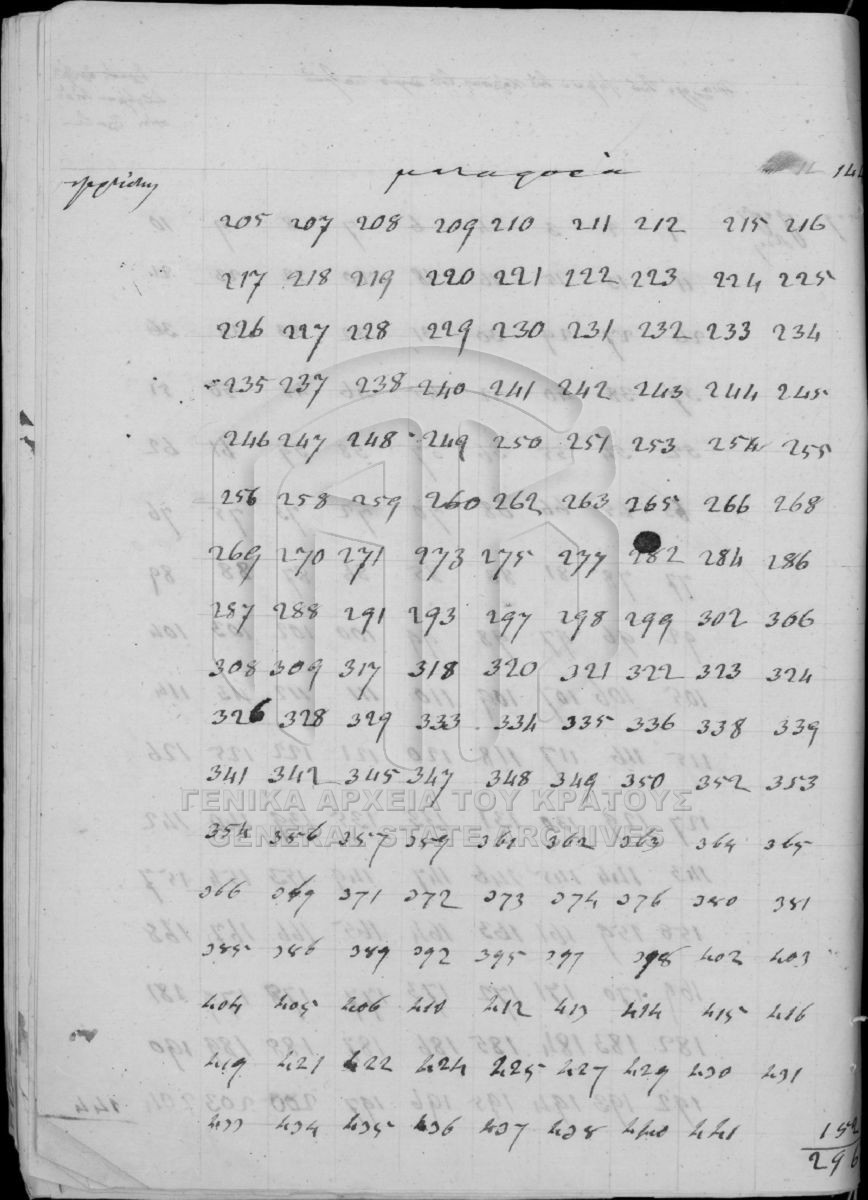 μεταφορὰ 144
205 207 208 209 210 211 212 215 216
217 218 219 220 221 222 223 224 225
226 227 228 229 230 231 232 233 234
235 237 238 240 241 242 243 244 245
246 247 248 249 250 251 253 254 255
256 258 259 260 262 263 265 266 268
269 270 271 273 275 277 282 284 286
287 288 291 293 297 298 299 302 306
308 309 317 318 320 321 322 323 324
326 328 329 333 334 335 336 338 339
341 342 345 347 348 349 350 352 353
ΓΕΝΙΚΑ ΑΡΧΕΙΑ ΤΟΥ ΚΡΑΤΟΥΣ
GENERAL STATE ARCHIVES
354 356 357 359 361 362 363 364 365
366 369 371 372 373 374 376 380 381
385 386 389 392 395 397 398 402 403
404 405 406 410 412 413 414 415 416
419 421 422 424 425 427 429 430 431
433 434 435 436 437 438 440 441
152
296